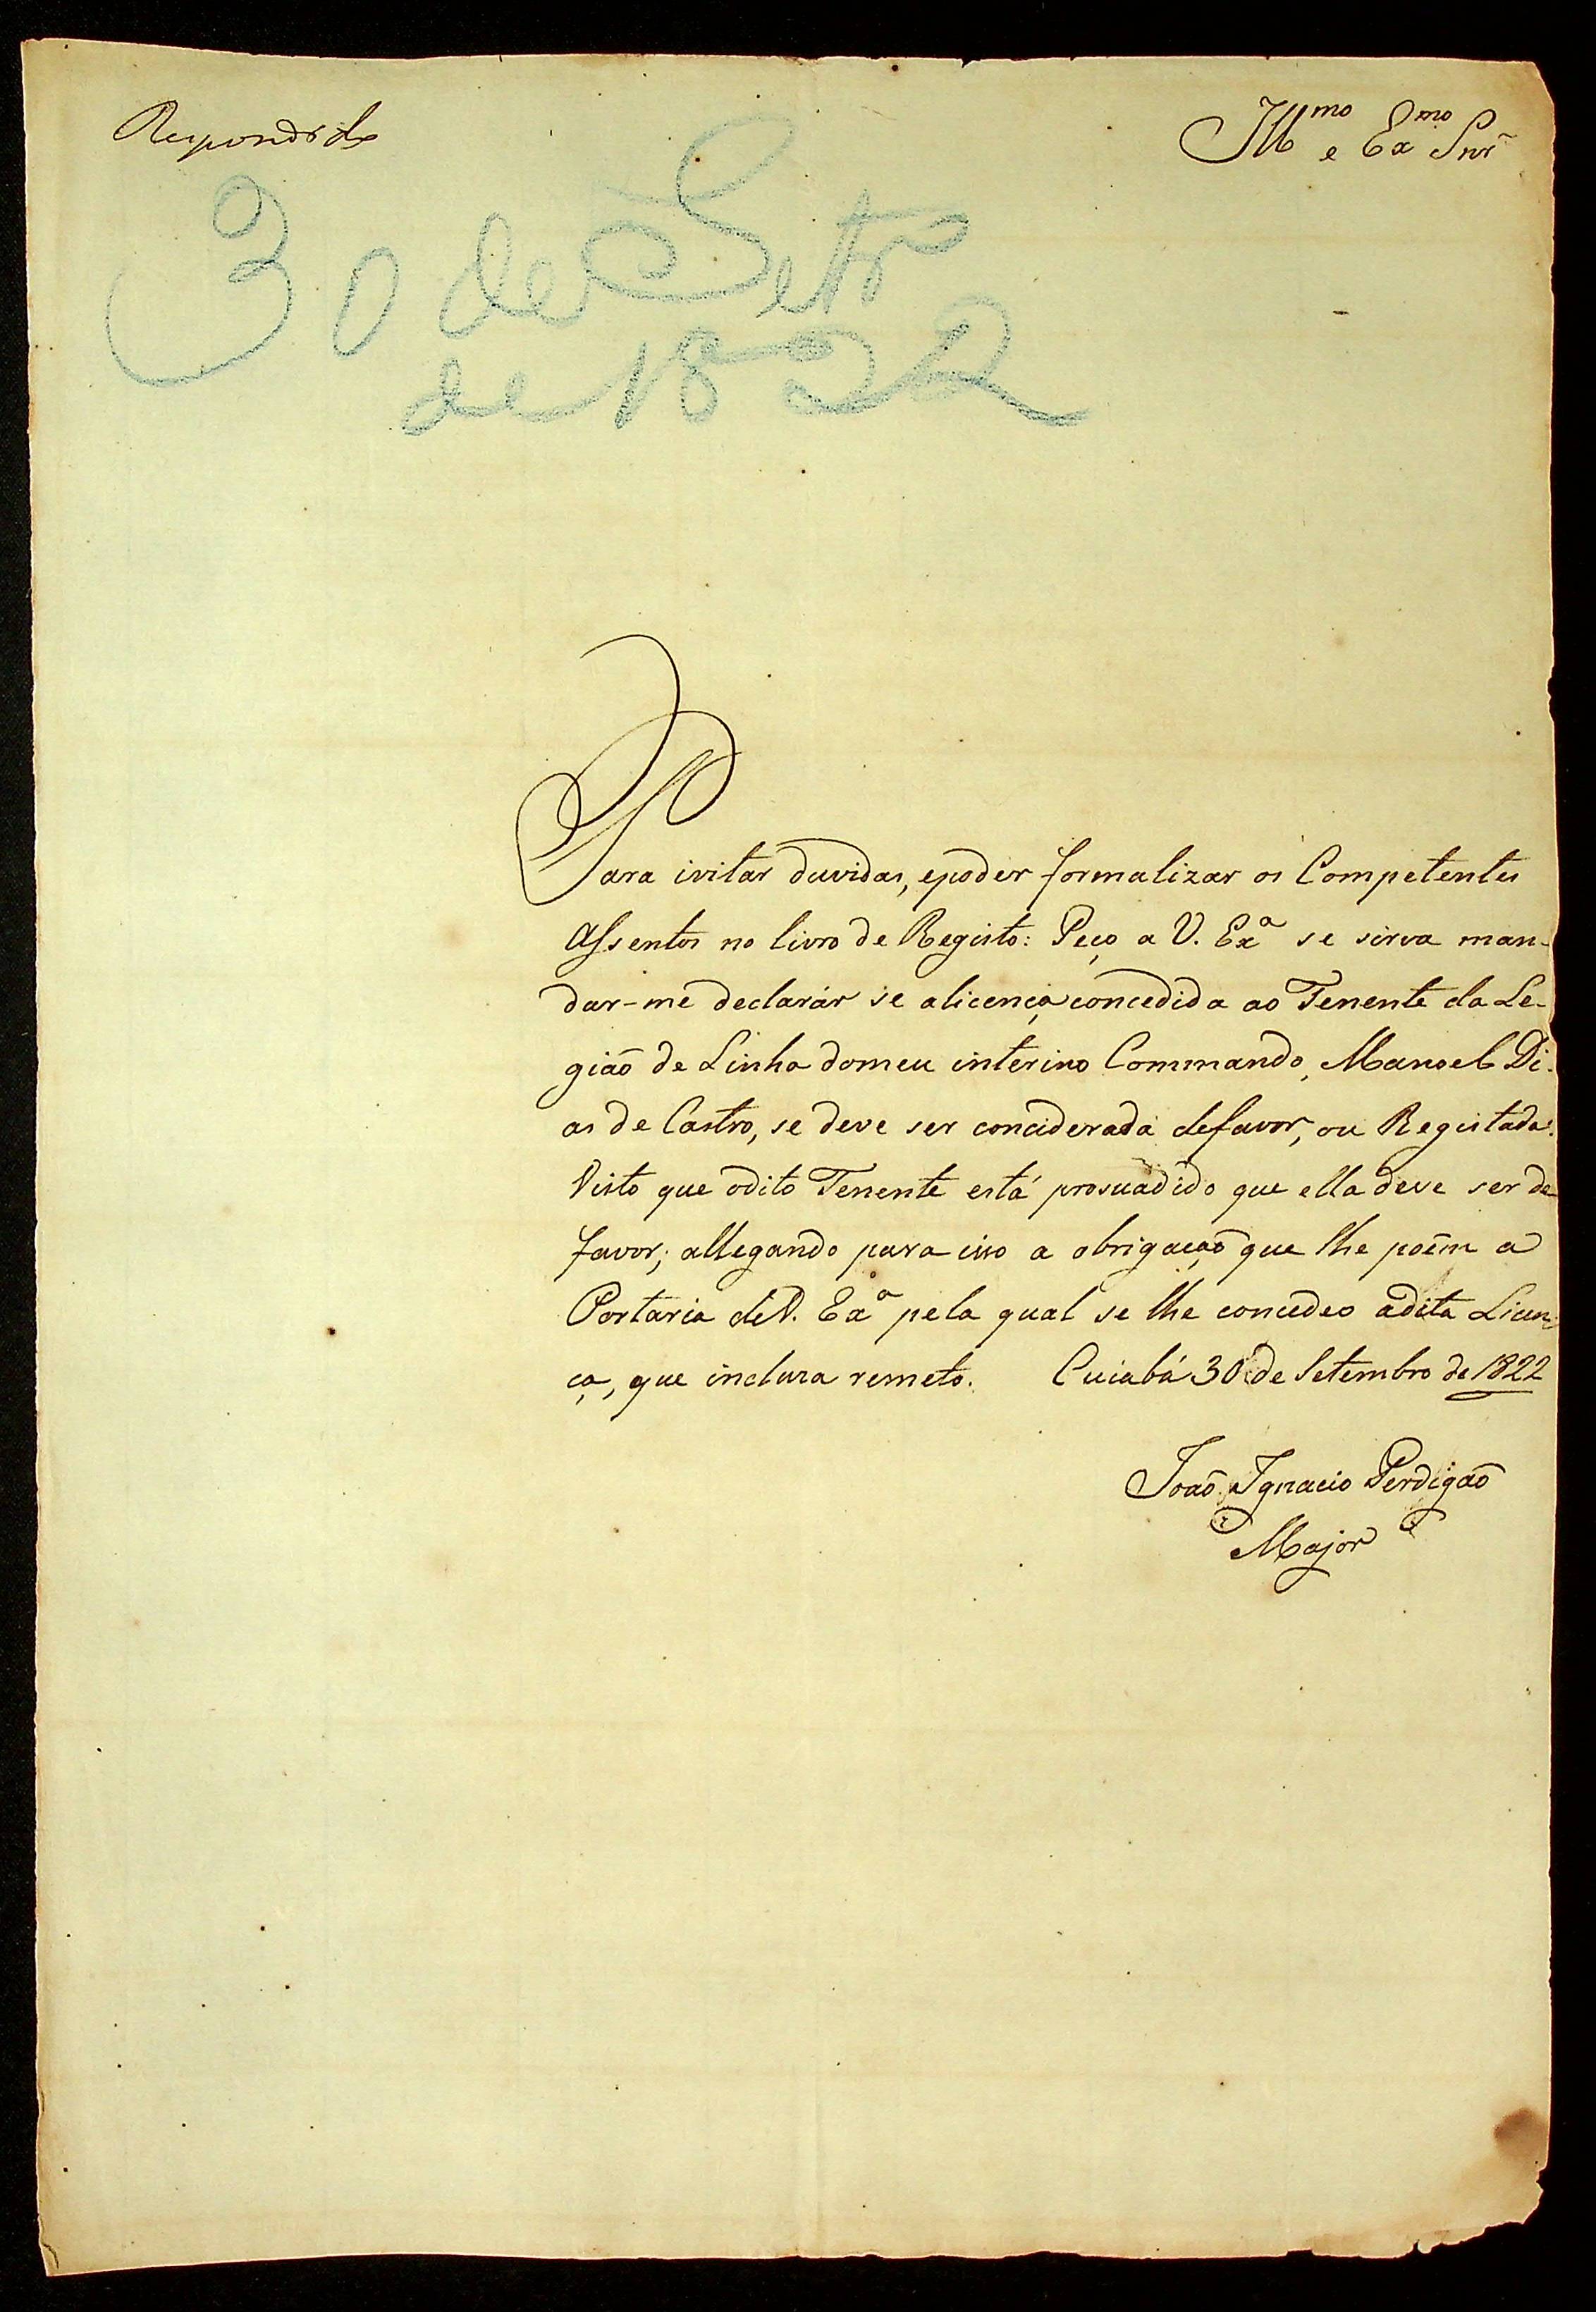 Respondido
Ill.mo e Ex.mo Snr.
30 de Setr.o
de 1822
Para ivitar duvidas, epoder formalizar os Competentes
Assentos no livro de Registo: Peço a V. Ex.a se sirva man-
dar-me declarár se alicença concedida ao Tenente da Le-
gião de Linha domeu interino Commando, Manoel Di-
as de Castro, se deve ser conciderada defavor, ou Registada:
Visto que odito Tenente está prosuadido que ella deve ser de
favor; allegando para isso a obrigação que lhe poêm a
Portaria deV. Ex.a pela qual se lhe concedeo adita Licen-
ça, que incluza remeto. Cuiabá 30 de Setembro de 1822
João Ignacio Perdigão
Major